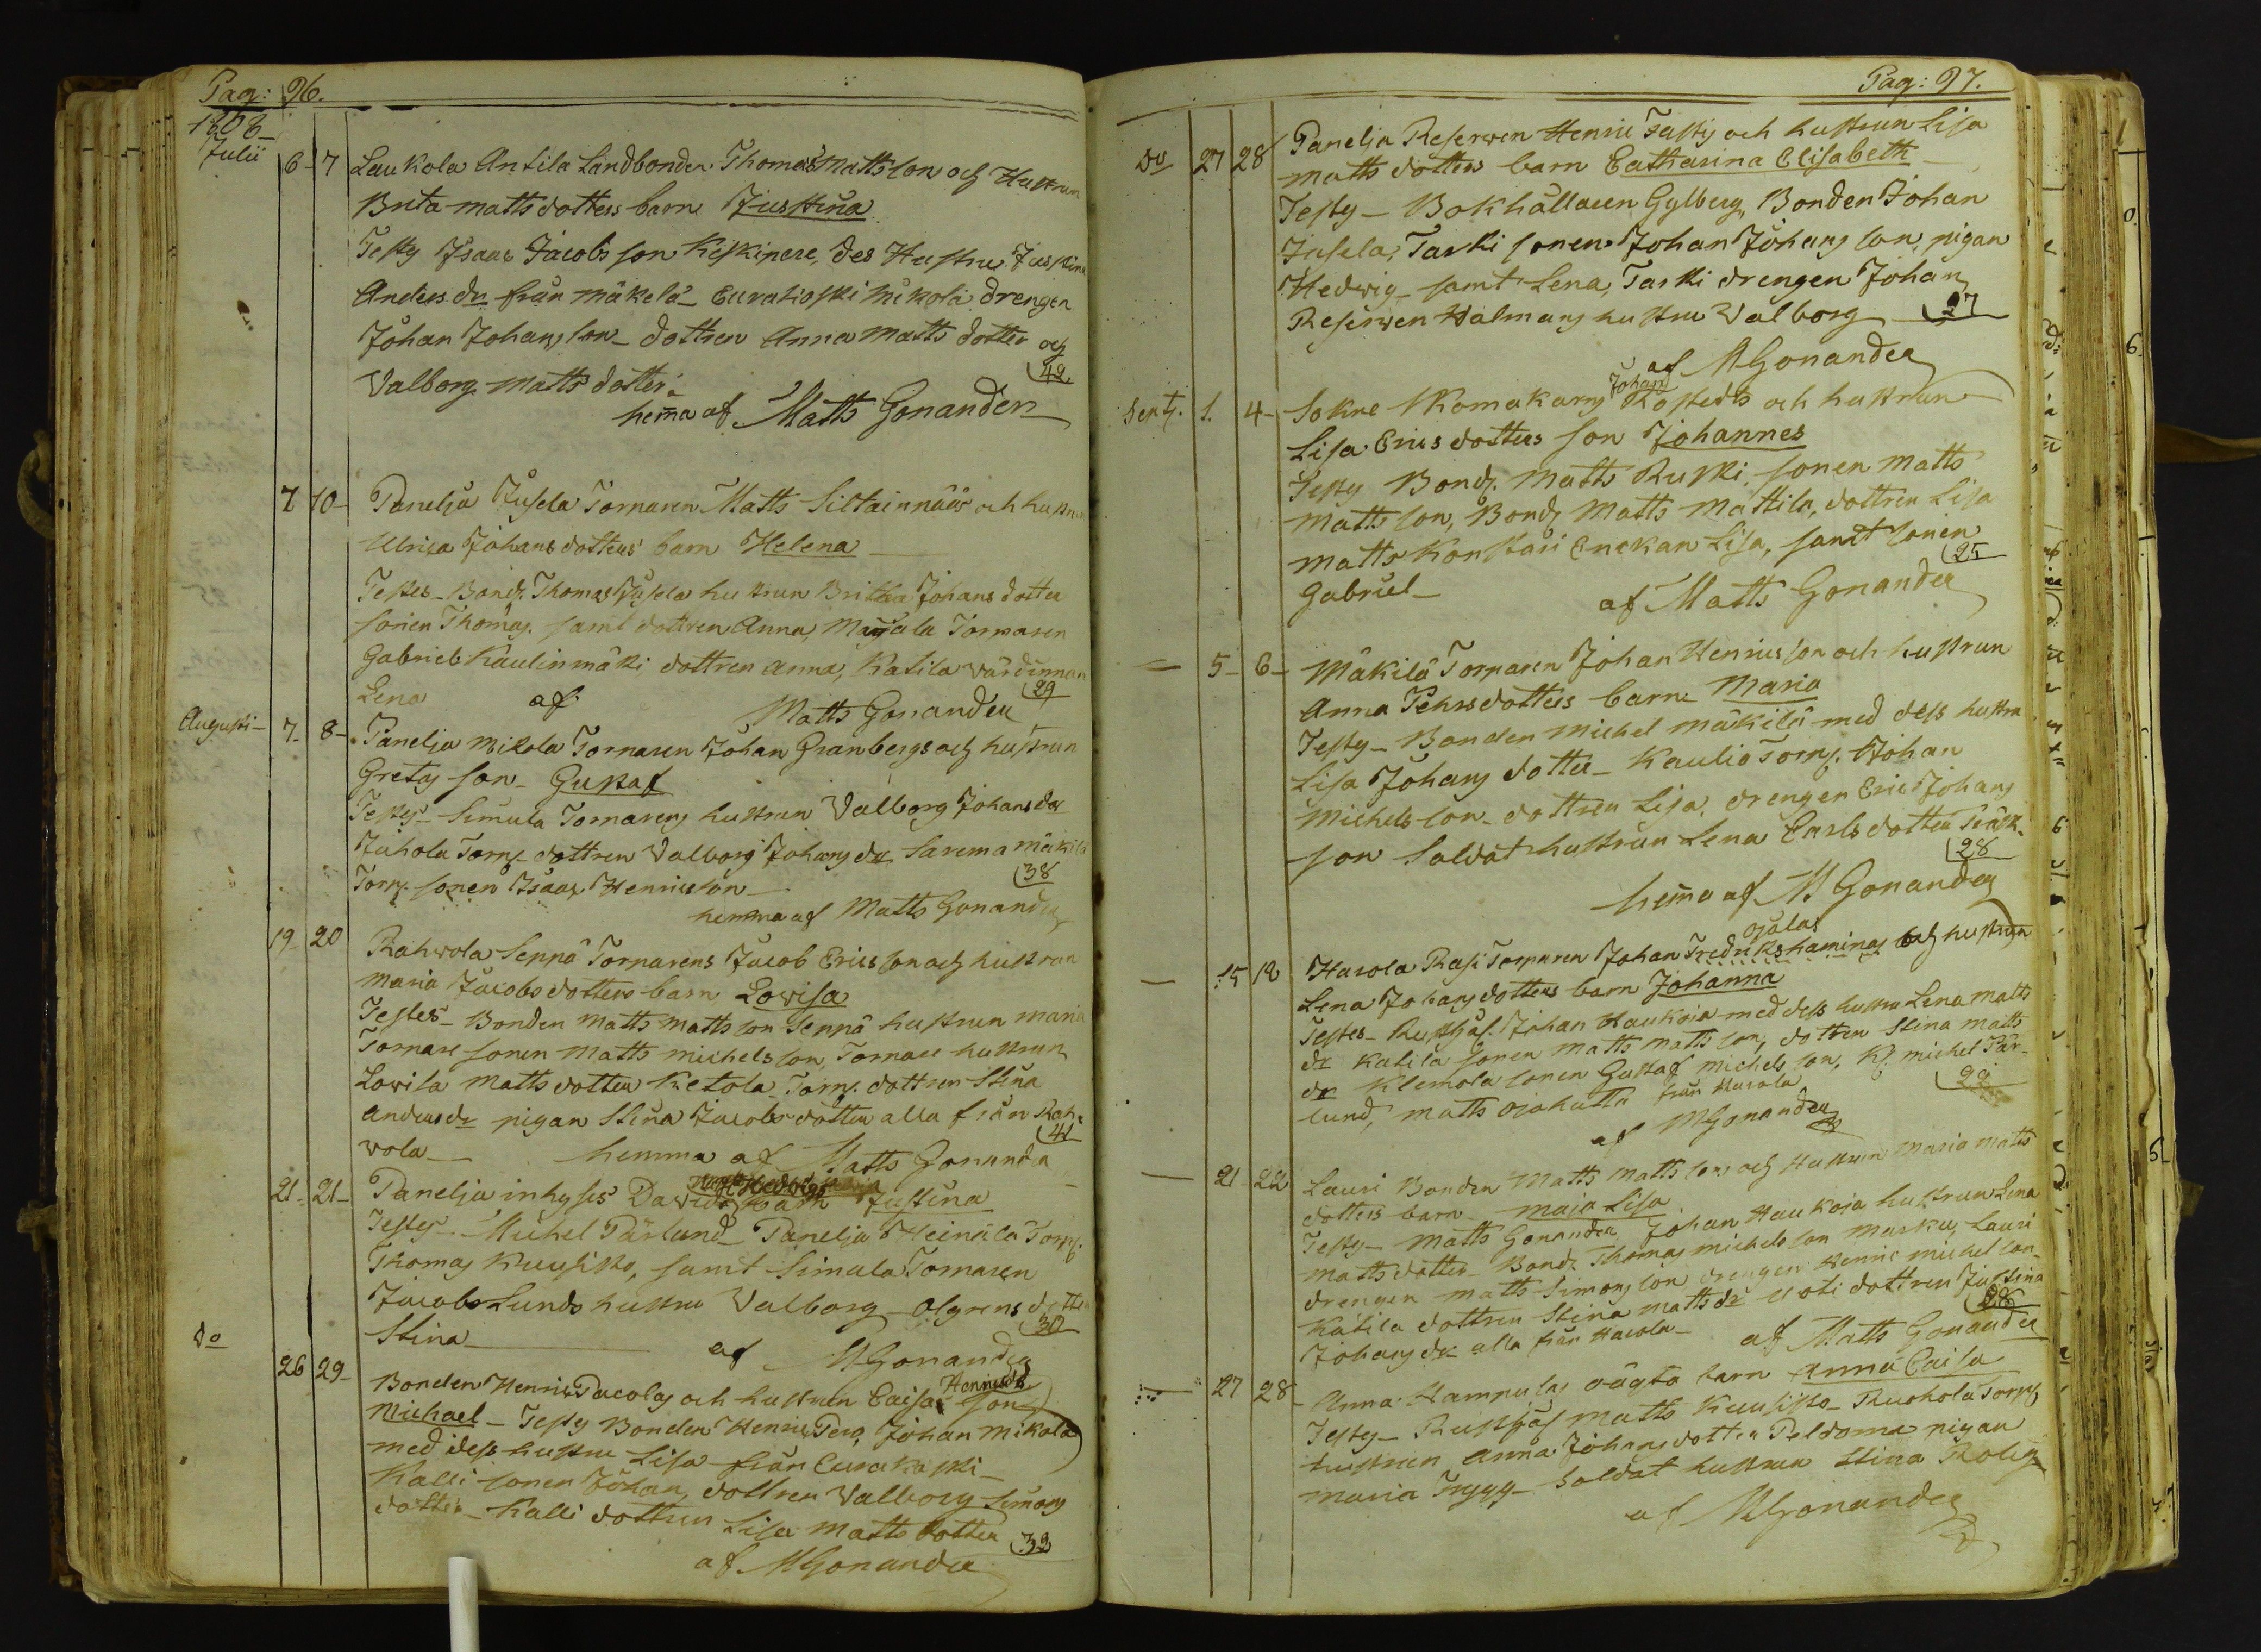 Pag: 96.
1808
Julii
6 7 Laukola Antila Landbonden Thomas Mattsson och Hustrun
Brita matts dotters barn Justina
Testes Isaac Jacobs son Kiskinpere, des Hustru Justina
Anders dr från mäkelä Euratioski Mikola drengen
Johan Johansson dottren Anna Matts dotter och
Valborg Matts dotter 42
hema af Matts Gonander
7 10 Panelja Jusela Torparen Matts Siltainnäär och hustru
Ulrica Johans dotters barn Helena
Testes Bond. Thomas Jusela hustrun Britha Johans dotter
sonen Thomas samt dottren Anna, Torparen
Gabriel Kaulinmäki dottren anna, Katila värdinnan
Lena af Matts Gonander 29
Augusti 7 8 Panelja Mikola Torparen Johan Granbergs och hustrun
Gretas son Gustaf
Testes Simula Torparens hustrun Valborg Johansdr
Juhola Torp. dottren Valborg Johansdr Sarema mäkilä
Torp. sonen Isaac Henricsson 38
hemma af Matts Gonander
19 20 Rahvola Seppä Torparens Jacob Ericsson och hustrun
Maria Jacobs dotters barn Lovisa
Testes Bonden Matts Mattsson Seppä hustrun maria
Torpare sonen Matts michelsson, Torpare hustrun
Lovisa Matts dotter Ketola Torp. dottren Stina
Andersdr pigan Stina Jacobs dotter alla från Rah-
vola hemma af Matts Gonander 41
21 21 Panelja inhyses Davids Hedvigs barn Justina
Testes Michel Pärlund Panelja Heinilä Torp.
Thomas Kuusisto, samt Simula Torparen
Jacob Lunds hustru Valborg Olgrens dotter
Stina 30
af M Gonander
do 26 29 Bonden Henric Pacolas och hustrun Caisa Henricsdr son
Michael Testes Bonden Henric Pero, Johan Mikola
med dess hustru Lisa från Eurakoski
Kalli sonen Johan, dottren Valborg Simons
dotter Kalli dottren Lisa Matts dotter 39
af M Gonander
Pag: 97.
do 27 28 Panelja Reserven Henric Fastig och hustrun Lisa
Matts dotters barn Catharina Elisabeth
Testes Bokhållaren Gylberg, Bonden Johan
Jusela, Taski sonen Johan Johansson, pigan
Hedvig samt Lena, Taski drengen Johan
Reserven Walmans hustru Valborg 27
af M Gonander
Sept. 1 4 Sokne Skomakarns Johan Rostedts och hustrun
Lisa Erics dotters son Johannes
Testes Bond. Matts Ruski, sonen Matts
Mattsson, Bond. Matts Mattila, dottren Lisa
Matts Konstari Enckan Lisa, samt sonen
Gabriel 25
af Matts Gonander
5 6 Mäkilä Torparen Johan Henricsson och hustrun
Anna Pehrsdotters barn Maria
Testes Bonden Michel Mäkilä med dess hustru
Lisa Johans dotter Kaulio Torp. Johan
Michelsson dottren Lisa, drengen Eric Johans
son Soldat hustrun Lena Carlsdotter 28
hema af M Gonander
15 18 Harola Rasi Torparen Johan Fredrikshaminas Ojalas och hustrun
Lena Johansdotters barn Johanna
Testes Rusth. Johan Haukoia med dess hustru Lena Matts
dr Katila sonen Matts Mattsson, dottren Stina Matts
dr Klemola sonen Gustaf Michelsson, Michel Pär-
lund, Matts Ojakatta från Harola 29
af M Gonander
21 22 Lauri Bonden Matts Mattsson och Hustrun Maria Matts
dotters barn Maja Lisa
Testes Matts Gonander Johan Haukoja hustrun Lena
Matts dotter Bond. Thomas Michelsson Marku, Lauri
drengen Matts Simonsson drengen Henric Michelsson
Katila dottren Stina Mattsdr Uoti dottren Justina
Johansdr alla från Harola 28
af Matts Gonander
27 28 Anna Hampulas oägta barn Anna Caisa
Testes Rusth. Matts Kuusisto Ruokola Torp.
hustrun Anna Johansdotter Peldoma pigan
Maria Trygg Soldat hustrun Stina Rolig
af M Gonander